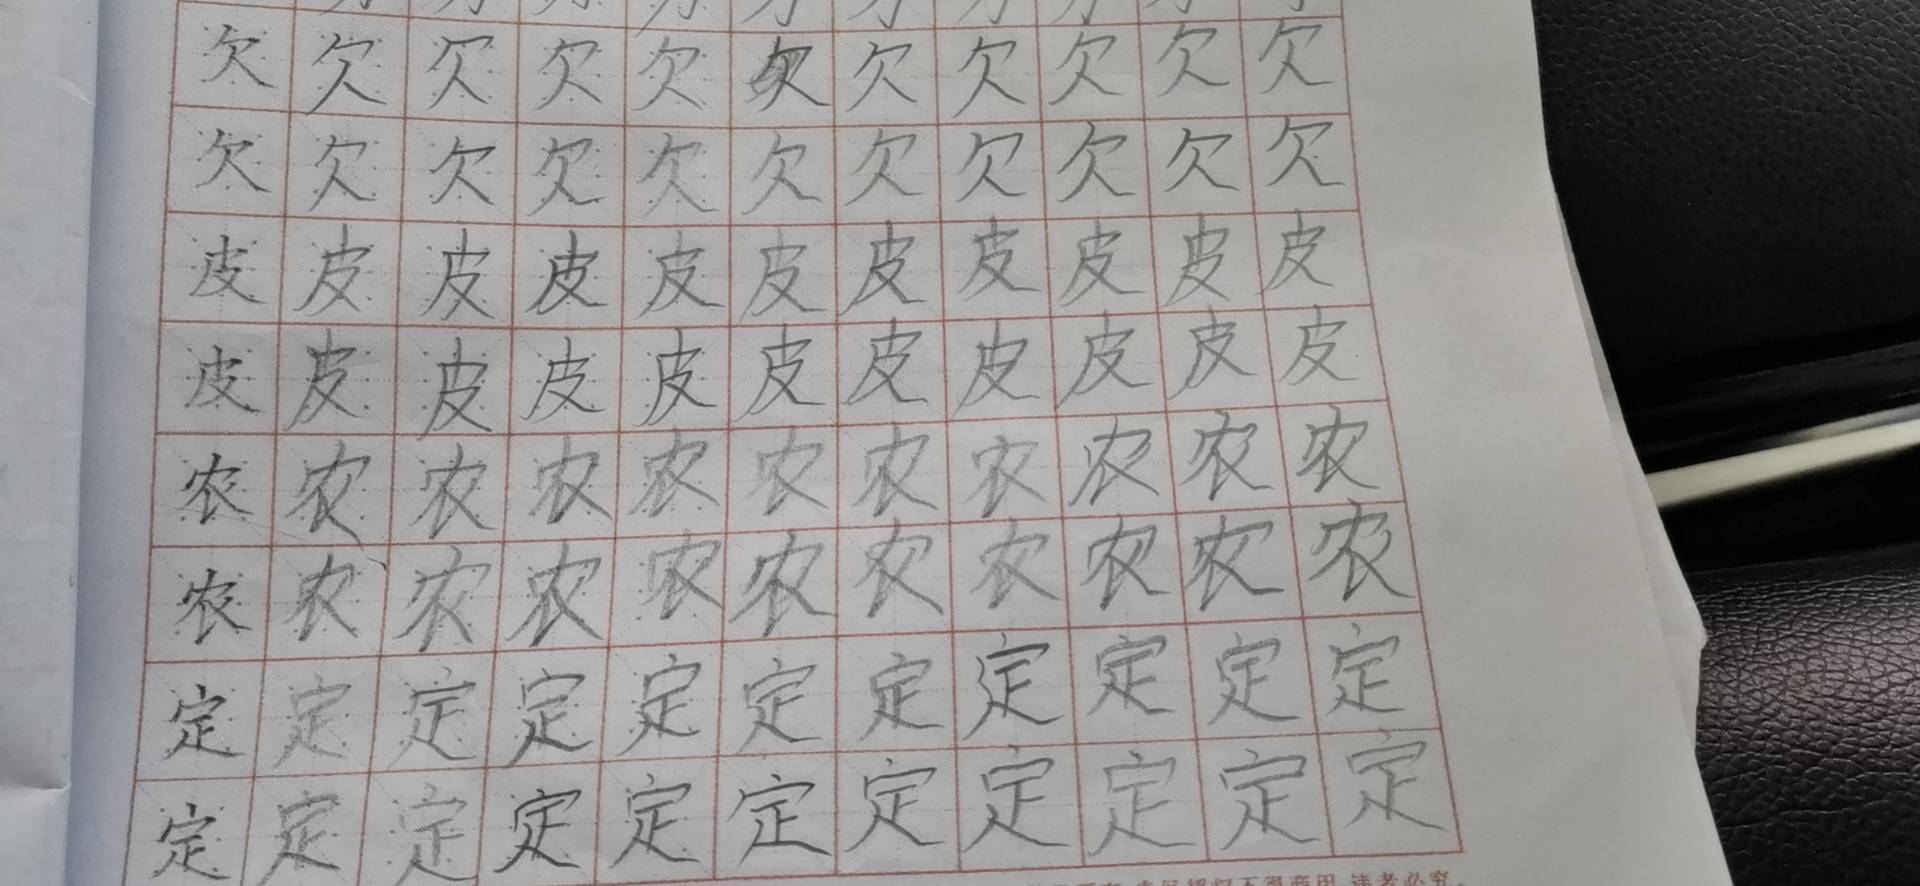 欠欠欠欠欠欠欠欠欠欠欠
欠欠欠欠欠欠欠欠欠欠欠
皮皮皮皮皮皮皮皮皮皮皮
皮皮皮皮皮皮皮皮皮皮皮
农农农农农农农农农农农
农农农农农农农农农农农
定定定定定定定定定定定
定定定定定定定定定定定
不得商用 违者必究